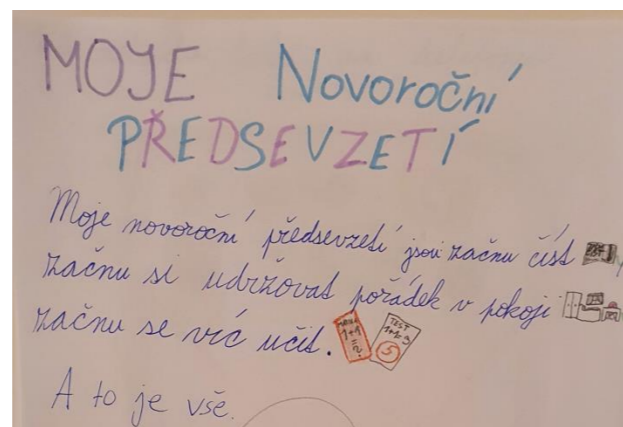 MOJE Novoroční
PŘEDSEVZETÍ
Moje novoroční předsevzetí jsou začnu číst
začnu si udržovat pořádek v pokoji
začnu se víc učit.
1+1
=?
TEST
1+1=3
5
A to je vše.